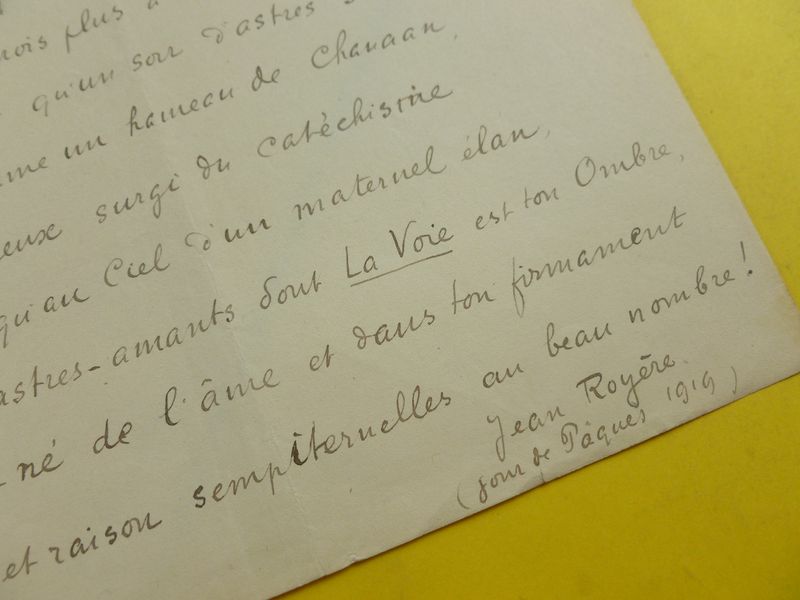 nois plus
qu'un soir d'astres
me un hameau de Chanaan,
eux surgi du catéchisme
qu'au Ciel d'un maternel élan,
astres-amants dont La Voie est ton Ombre,
né de l'âme et dans ton firmament
et raison sempiternelles au beau nombre!
Jean Royère.
(jour de Pâques 1919)